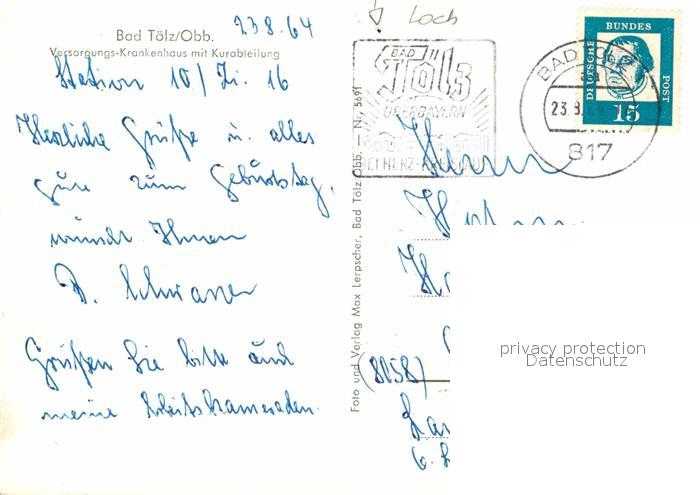 23.8.64
Bad Tölz/Obb.
Versorgungs-Krankenhaus mit Kurabteilung
Station 10/Zi. 16
Herzliche Grüße u. alles
gute zum Geburtstag,
wünscht Ihnen
Grüßen Sie bitte auch
meine Arbeitskameraden.
Foto und Verlag Max Lerpscher, Bad Tölz Obb. — Nr. 5691
Loch
BAD
TÖLZ
OBERBAYERN
BEI HERZ-KREISLAUF
BAD TÖLZ
23.8.
817
DEUTSCHE BUNDESPOST
15
Herrn
(8058)
privacy protection
Datenschutz